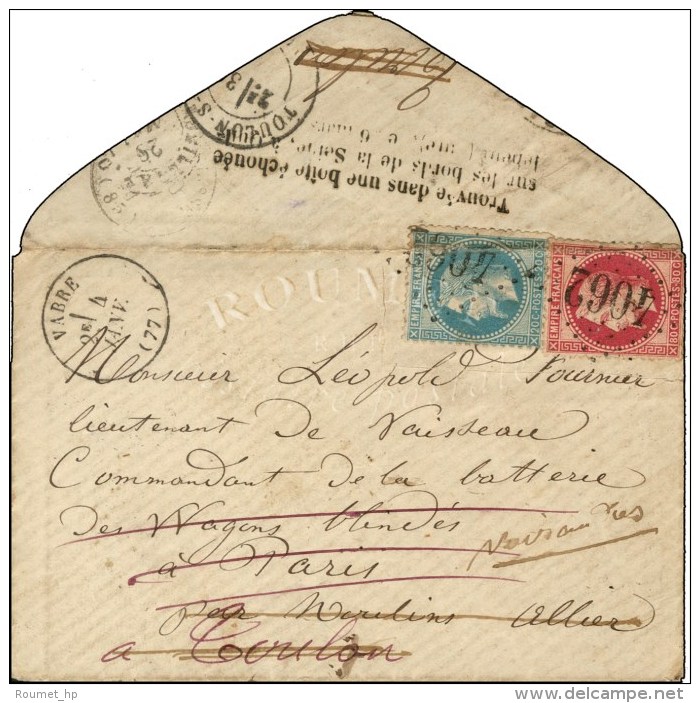 Toulon
TOULON-S-
Trouvée dans une boîte échouée
sur les bords de la Seine, à
le 6 mars
ROUM
VABRE
2E
4
JANV
(77)
4062
4062
EMPIRE FRANÇAIS
20C POSTES 20C
EMPIRE FRANÇAIS
80C POSTES 80C
Monsieur Léopold Fournier
lieutenant de Vaisseau
Commandant de la batterie
des Wagons blindés
à Paris
par Moulins Allier
a Toulon
Roumet_hp
www.delcampe.net